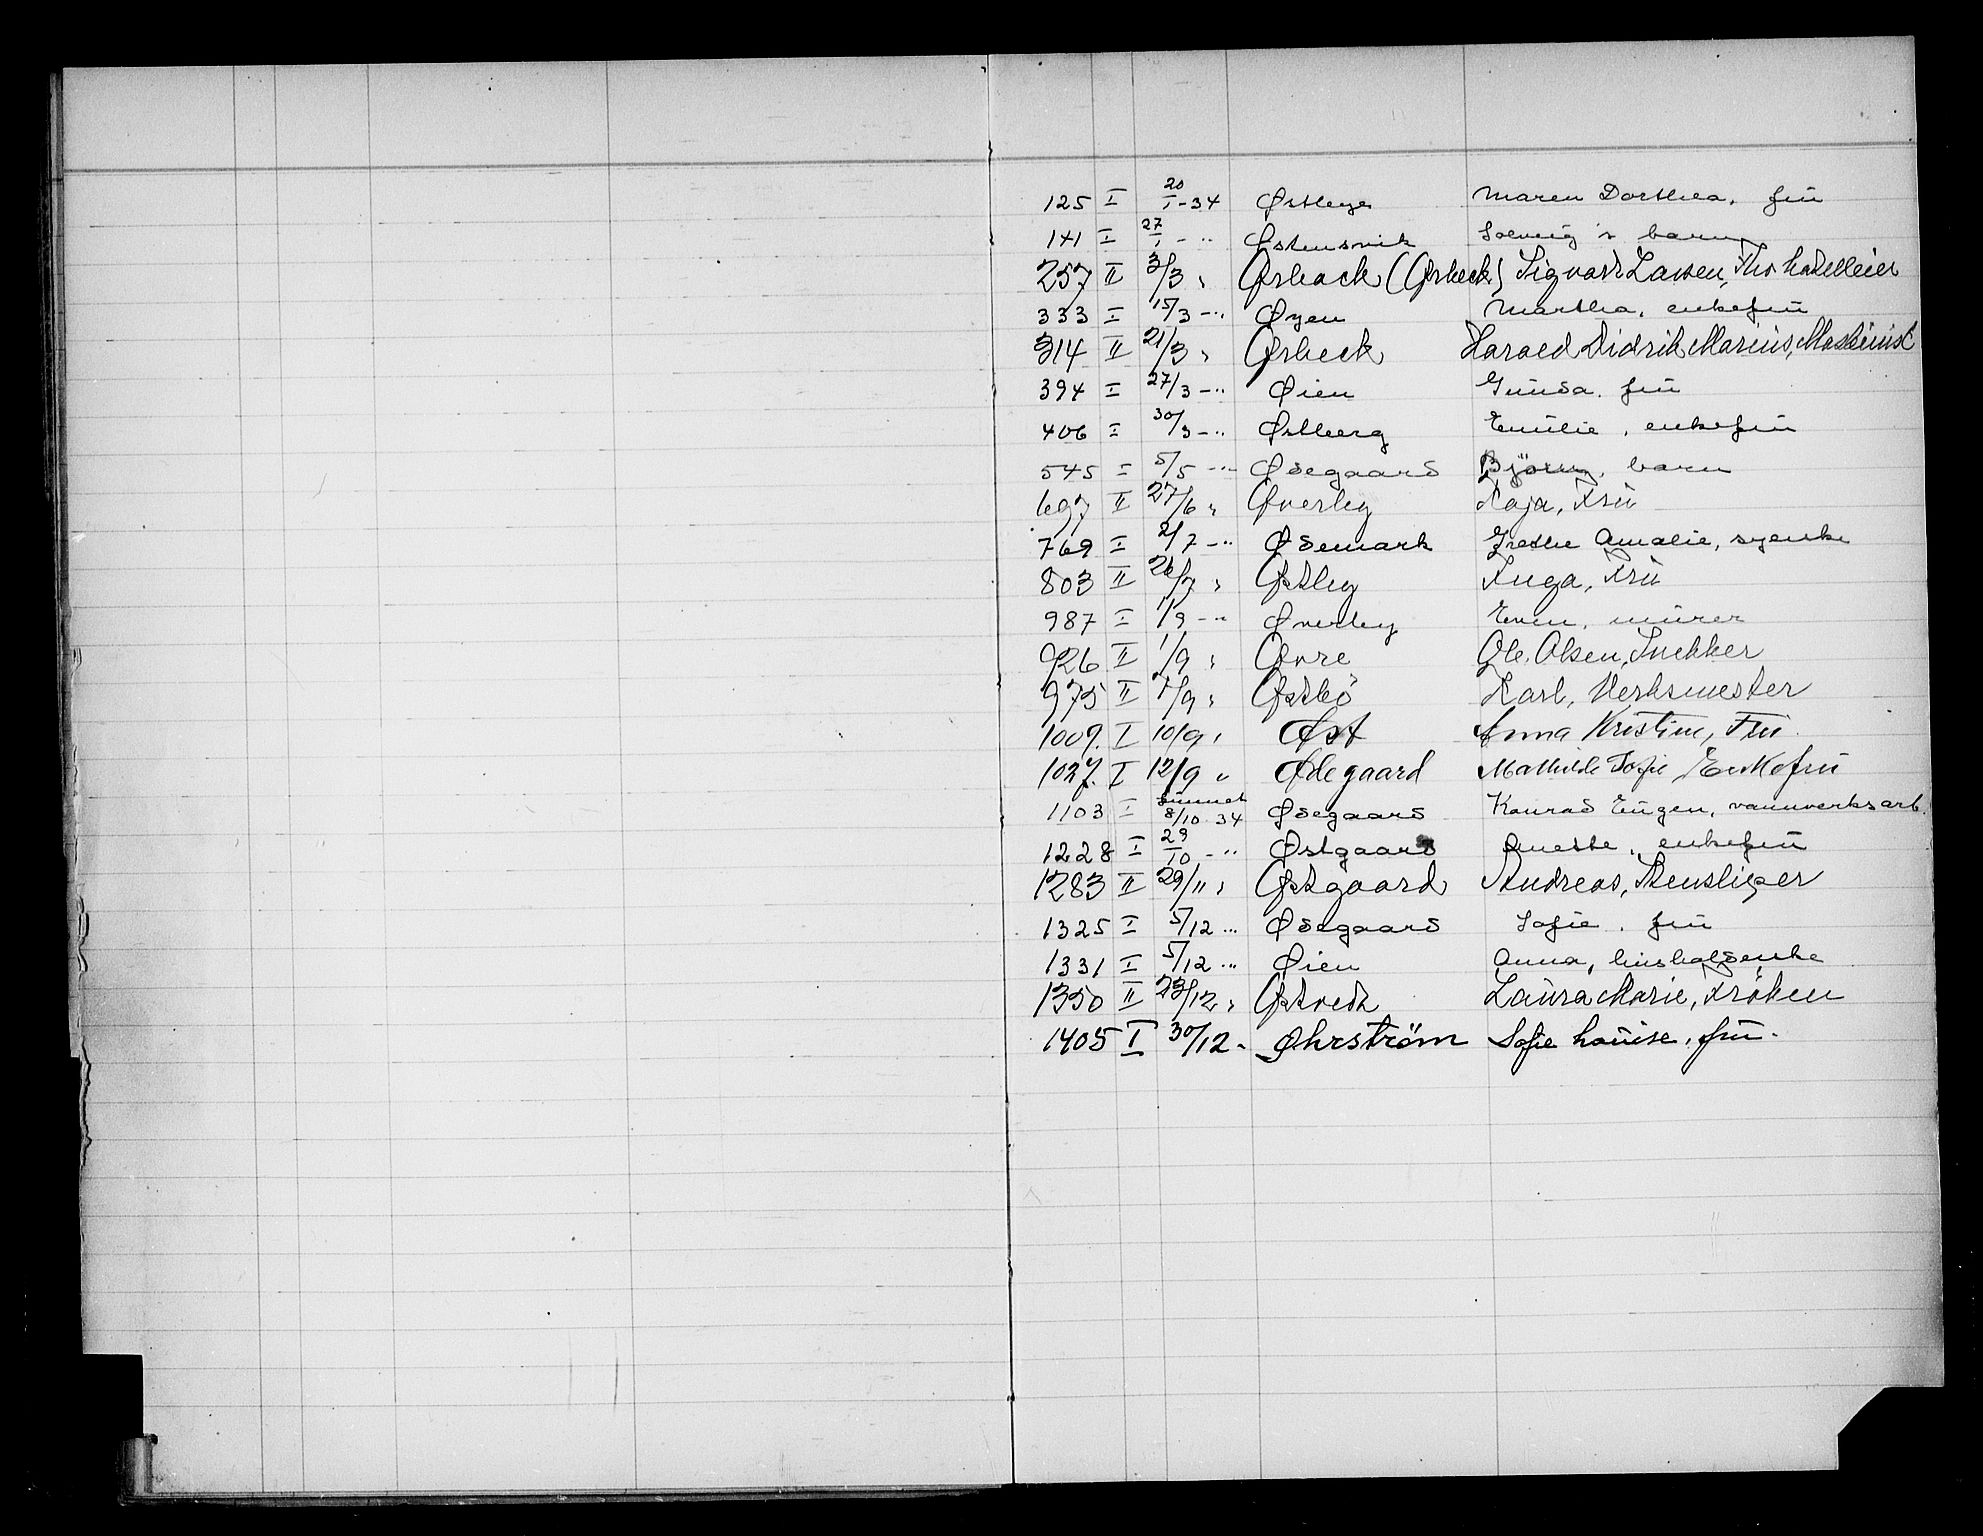 125 I 20/1-34 Østbye Maren Dorthea, frü
141 I 27/1 - " Østensvik Solveig's barn
257 II 3/3 " Ørback (Ørbeck) Sigvart Lavsen,
333 I 15/3 - " Øyen Martha, enkefrü
314 II 21/3 " Ørbeck Harald Didrik Marius, Maskinist
394 I 27/3 - " Øien Gunda, frü
406 I 30/3 - " Østberg Emilie, enkefrü
545 I 5/5 - " Ødegaard Björn, barn
697 II 27/6 " Øverby Kaja, Frü
769 I 2/7 - " Ødemark Grethe Amalie, syenke
803 II 26/7 " Østby Inga, Frü
987 I 1/9 - " Øverby Even, mürer
926 II 1/9 " Øvre Ole Olsen, Snekker
975 II 1/9 " Østbö Karl, Verksmester
1009. I 10/9 " Øst Anna Kristine, Frü.
1027. I 12/9 " Ødegaard Mathilde Sofie, Enkefrü
1103 I funnet 8/10 34 Ødegaard Konrad Eügen, vannverksarb.
1228 I 29/10 - " Østgaard Anette, enkefrü
1283 II 29/11 " Østgaard Andreas, Stensliper
1325 I 5/12 " Ødegaard Sofie, frü
1331 I 5/12 " Øien Anna, hüsholdenke
1350 II 23/12 " Østvedt Laüra Marie, Fröken
1405 I 30/12 - Øhrström Sofie Loüise, frü.